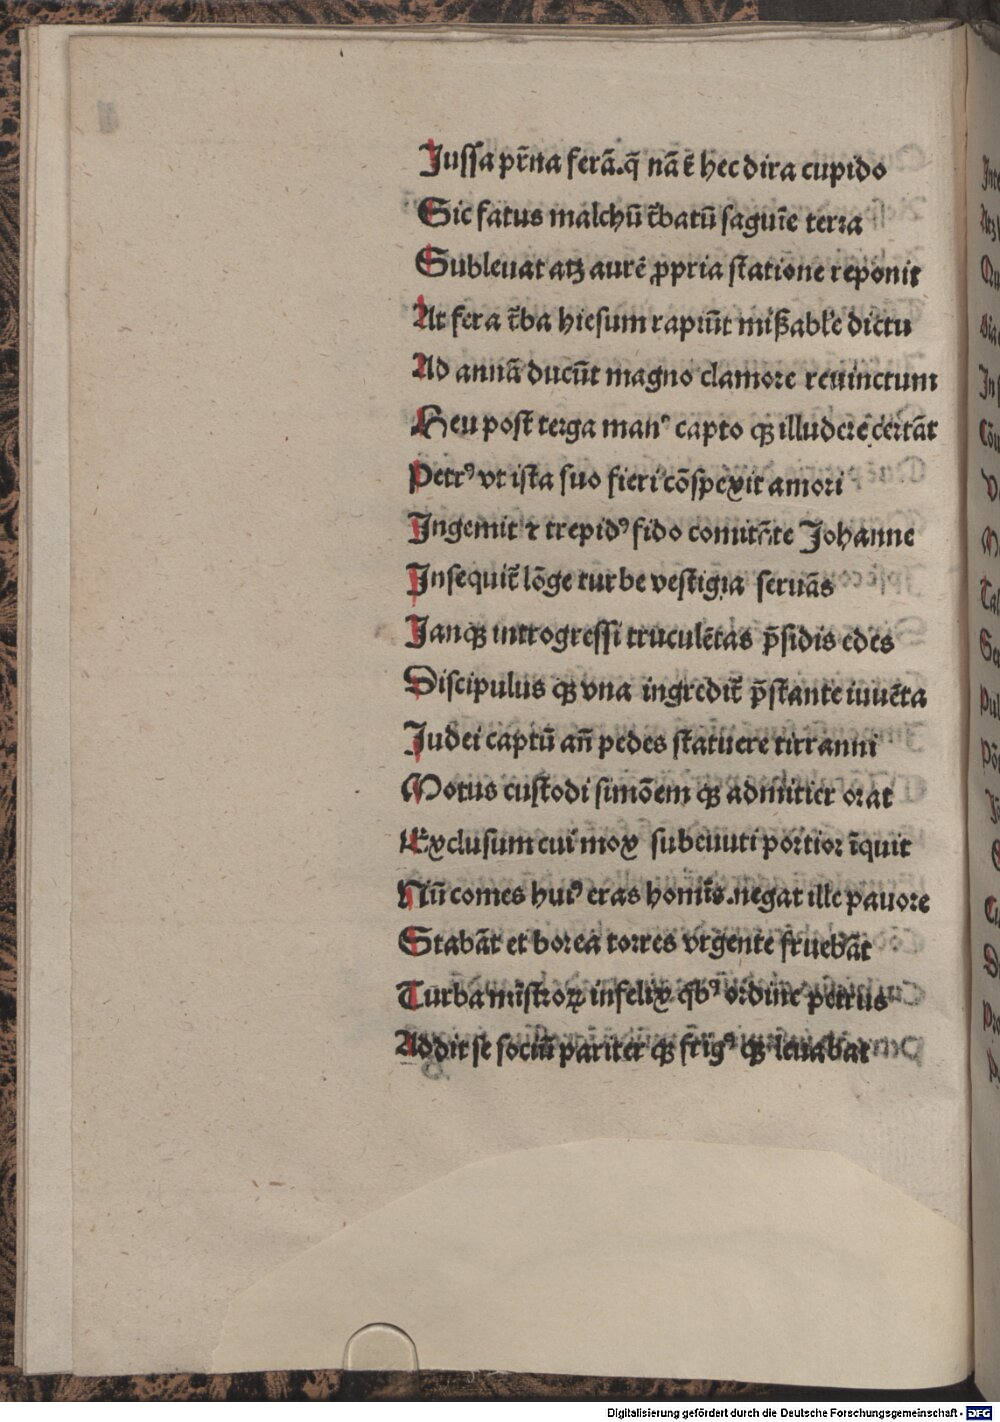 Jussa pr̄na ferā.q̄ nā ē hec dira cupido
Sic fatus malchū t̄batū saguīe terra
Subleuat atqꝫ aurē ꝓpria statione reponit
At fera t̄ba hiesum rapiūt mißable dictu
Ad annā ducūt magno clamore reuinctum
Heu post terga manꝰ capto qꝫ illudere certāt
Petrꝰ vt ista suo fieri cōspexit amori
Ingemit ⁊ trepidꝰ fido comitāte Johanne
Insequit̄ lōge turbe vestigia seruās
Janqꝫ introgressi truculētas p̄sidis edes
Discipulus qꝫ vna ingredit̄ p̄stante iuuēta
Judei captū an̄ pedes statuere tirranni
Motus custodi simōem qꝫ admitier orat
Exclusum cui mox subeunti portior īquit
Nū comes huiꝰ eras homīs.negat ille pauore
Stabāt et borea torres vrgente fruebāt
Turba mīstroꝝ infelix qͥbꝰ ordine petrus
Addit se sociū pariter qꝫ frigꝰ qꝫ leuabat
Digitalisierung gefördert durch die Deutsche Forschungsgemeinschaft - DFG